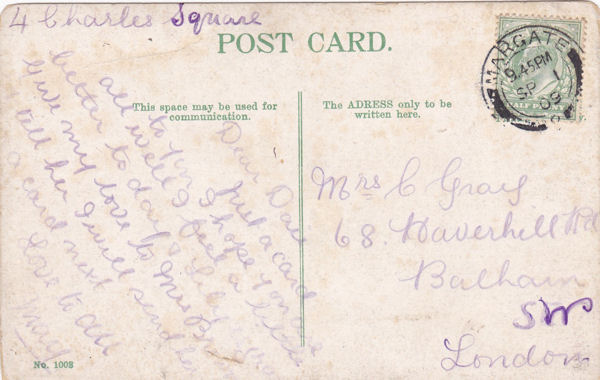 4 Charles Square
POST CARD.
MARGATE
9.45PM
SP 1
09
HALF PENNY
This space may be used for
communication.
The ADRESS only to be
written here.
Dear Dave
Just a card
to you I hope you are
all well I feel a little
better today & Lily
Give my love to Mrs
tell her I will send her
a card next
Love to all
May
Mrs C Gray
68. Haverhill Rd
Balham
SW
London
No. 1008